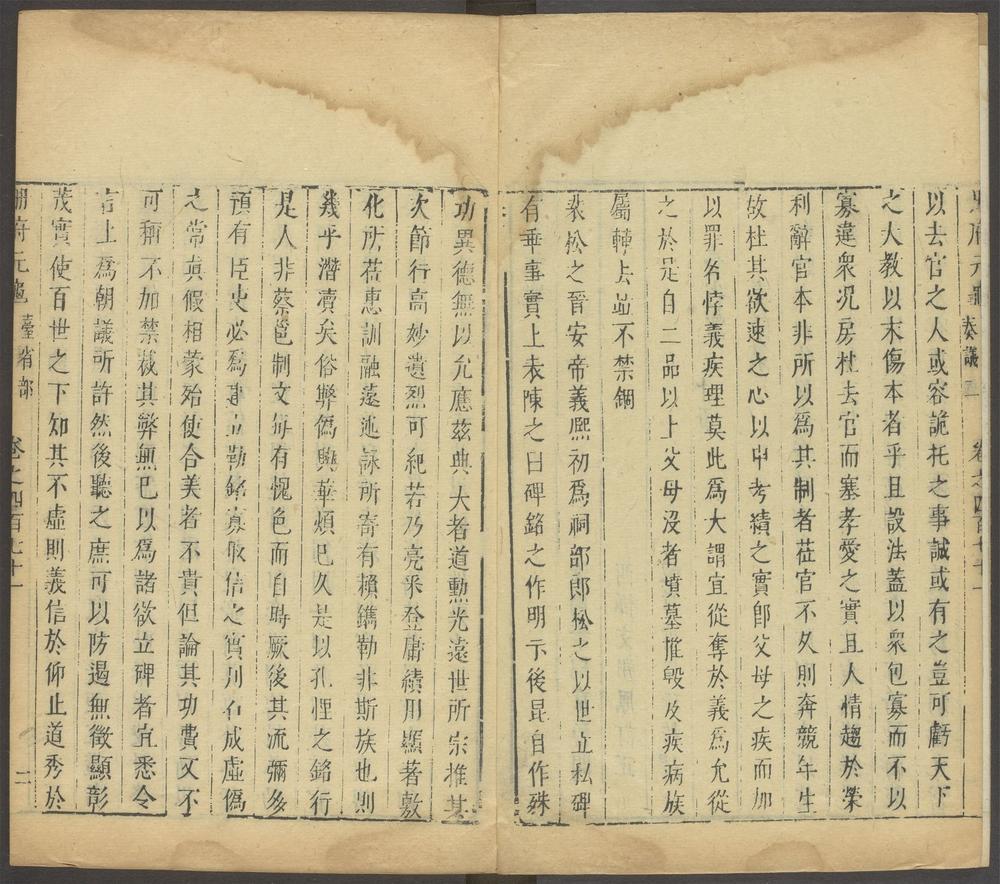 冊府元龜 奏議二 卷之四百七十一
以去官之人或容詭托之事誠或有之豈可虧天下
之大教以末傷本者乎且設法蓋以衆包寡而不以
寡違衆况房杜去官而塞孝愛之實且人情趨於榮
利辭官本非所以爲其制者莅官不久則奔競年生
故杜其欲速之心以申考績之實郎父母之疾而加
以罪名悖義疾理莫此爲大謂宜從奪於義爲允從
之於是自二品以上父母沒者墳墓摧毀及疾病族
屬輙去並不禁錮
裴松之晉安帝義熙初爲祠部郎松之以世立私碑
有乖事實上表陳之曰碑銘之作明示後昆自作殊
功異德無以允應茲典大者道勲光遠世所宗推其
次節行高妙遺烈可紀若乃亮采登庸績用顯著敷
化所莅惠訓融遠述詠所寄有賴鐫勒非斯族也則
幾乎潛凟矣俗弊僞興華煩已久是以孔悝之銘行
是人非蔡邕制文毎有愧色而自時厥後其流彌多
預有臣吏必爲建立勒銘寡取信之實刋石成虛僞
之常真假相蒙殆使合美者不貴但論其功費又不
可稱不加禁裁其弊無巳以爲諸欲立碑者宜悉令
言上爲朝議所許然後聽之庶可以防遏無徵顯彰
茂實使百世之下知其不虛則義信於仰止道秀於
冊府元龜 臺省部 卷之四百七十一 二